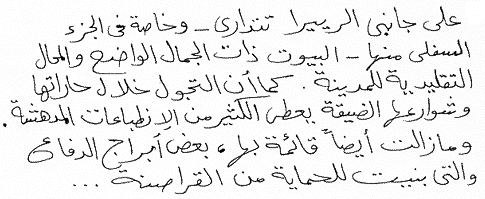 على جانبى الريبيرا تتدارى - وخاصة فى الجزء
السفلى منها - البيوت ذات الجمال الواضح والمحال
التقليدية للمدينة. كما أن التجول خلال حاراتها
وشوارعها الضيقة يعطى الكثير من الانطباعات المدهشة.
ومازالت أيضاً قائمة بها، بعض أبراج الدفاع
والتى بنيت للحماية من القراصنة ...